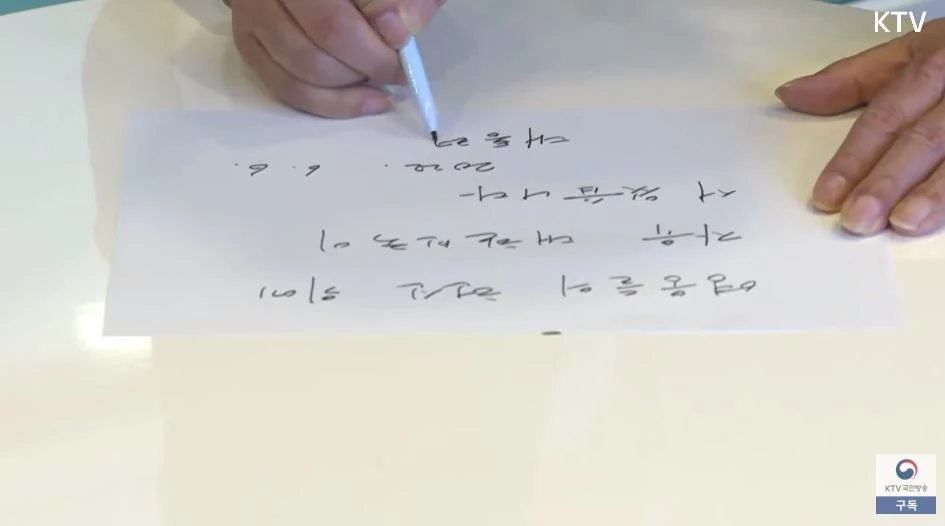 KTV
영웅들의 헌신 위에
자유 대한민국이
서 있습니다
2022. 6. 6.
대통
KTV 국민방송
구독